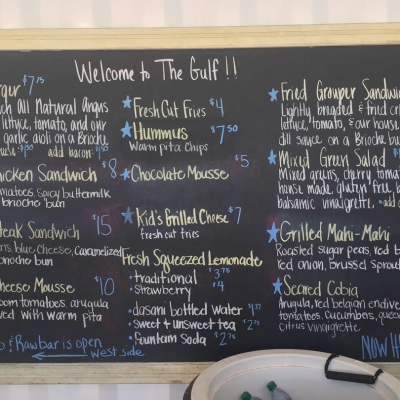 Welcome to The Gulf !!
rger $7.75
ch all Natural Angus
lettuce, tomato, and our
garlic aioli on a Brioche
add bacon
hicken Sandwich $8
matoes, spicy buttermilk
brioche bun
teak Sandwich $15
ms, blue cheese, caramelized
onoche bun
heese Mousse $10
oom tomatoes, arugula
ved with warm pita
& Rawbar is open
west side
Fresh Cut Fries $4
Hummus $7.50
Warm pita chips
Chocolate Mousse $5
Kid's Grilled Cheese $7
fresh cut fries
Fresh Squeezed Lemonade
• traditional $3.75
• Strawberry $4
• dasani bottled water
• sweet + unsweet tea $2.75
• fountain soda $2.75
Fried Grouper Sandwic
Lightly breaded & fried
lettuce, tomato, & our house
dill sauce on a Brioche bu
Mixed Green Salad
Mixed greens, cherry tomato
house made, gluten free, b
balsamic vinaigrette.
Grilled Mahi-Mahi
Roasted sugar peas, red b
red onion, brussel sprou
Seared Cobia
Arugula, red belgian endive
tomatoes, cucumbers,
citrus vinaigrette
NOW H